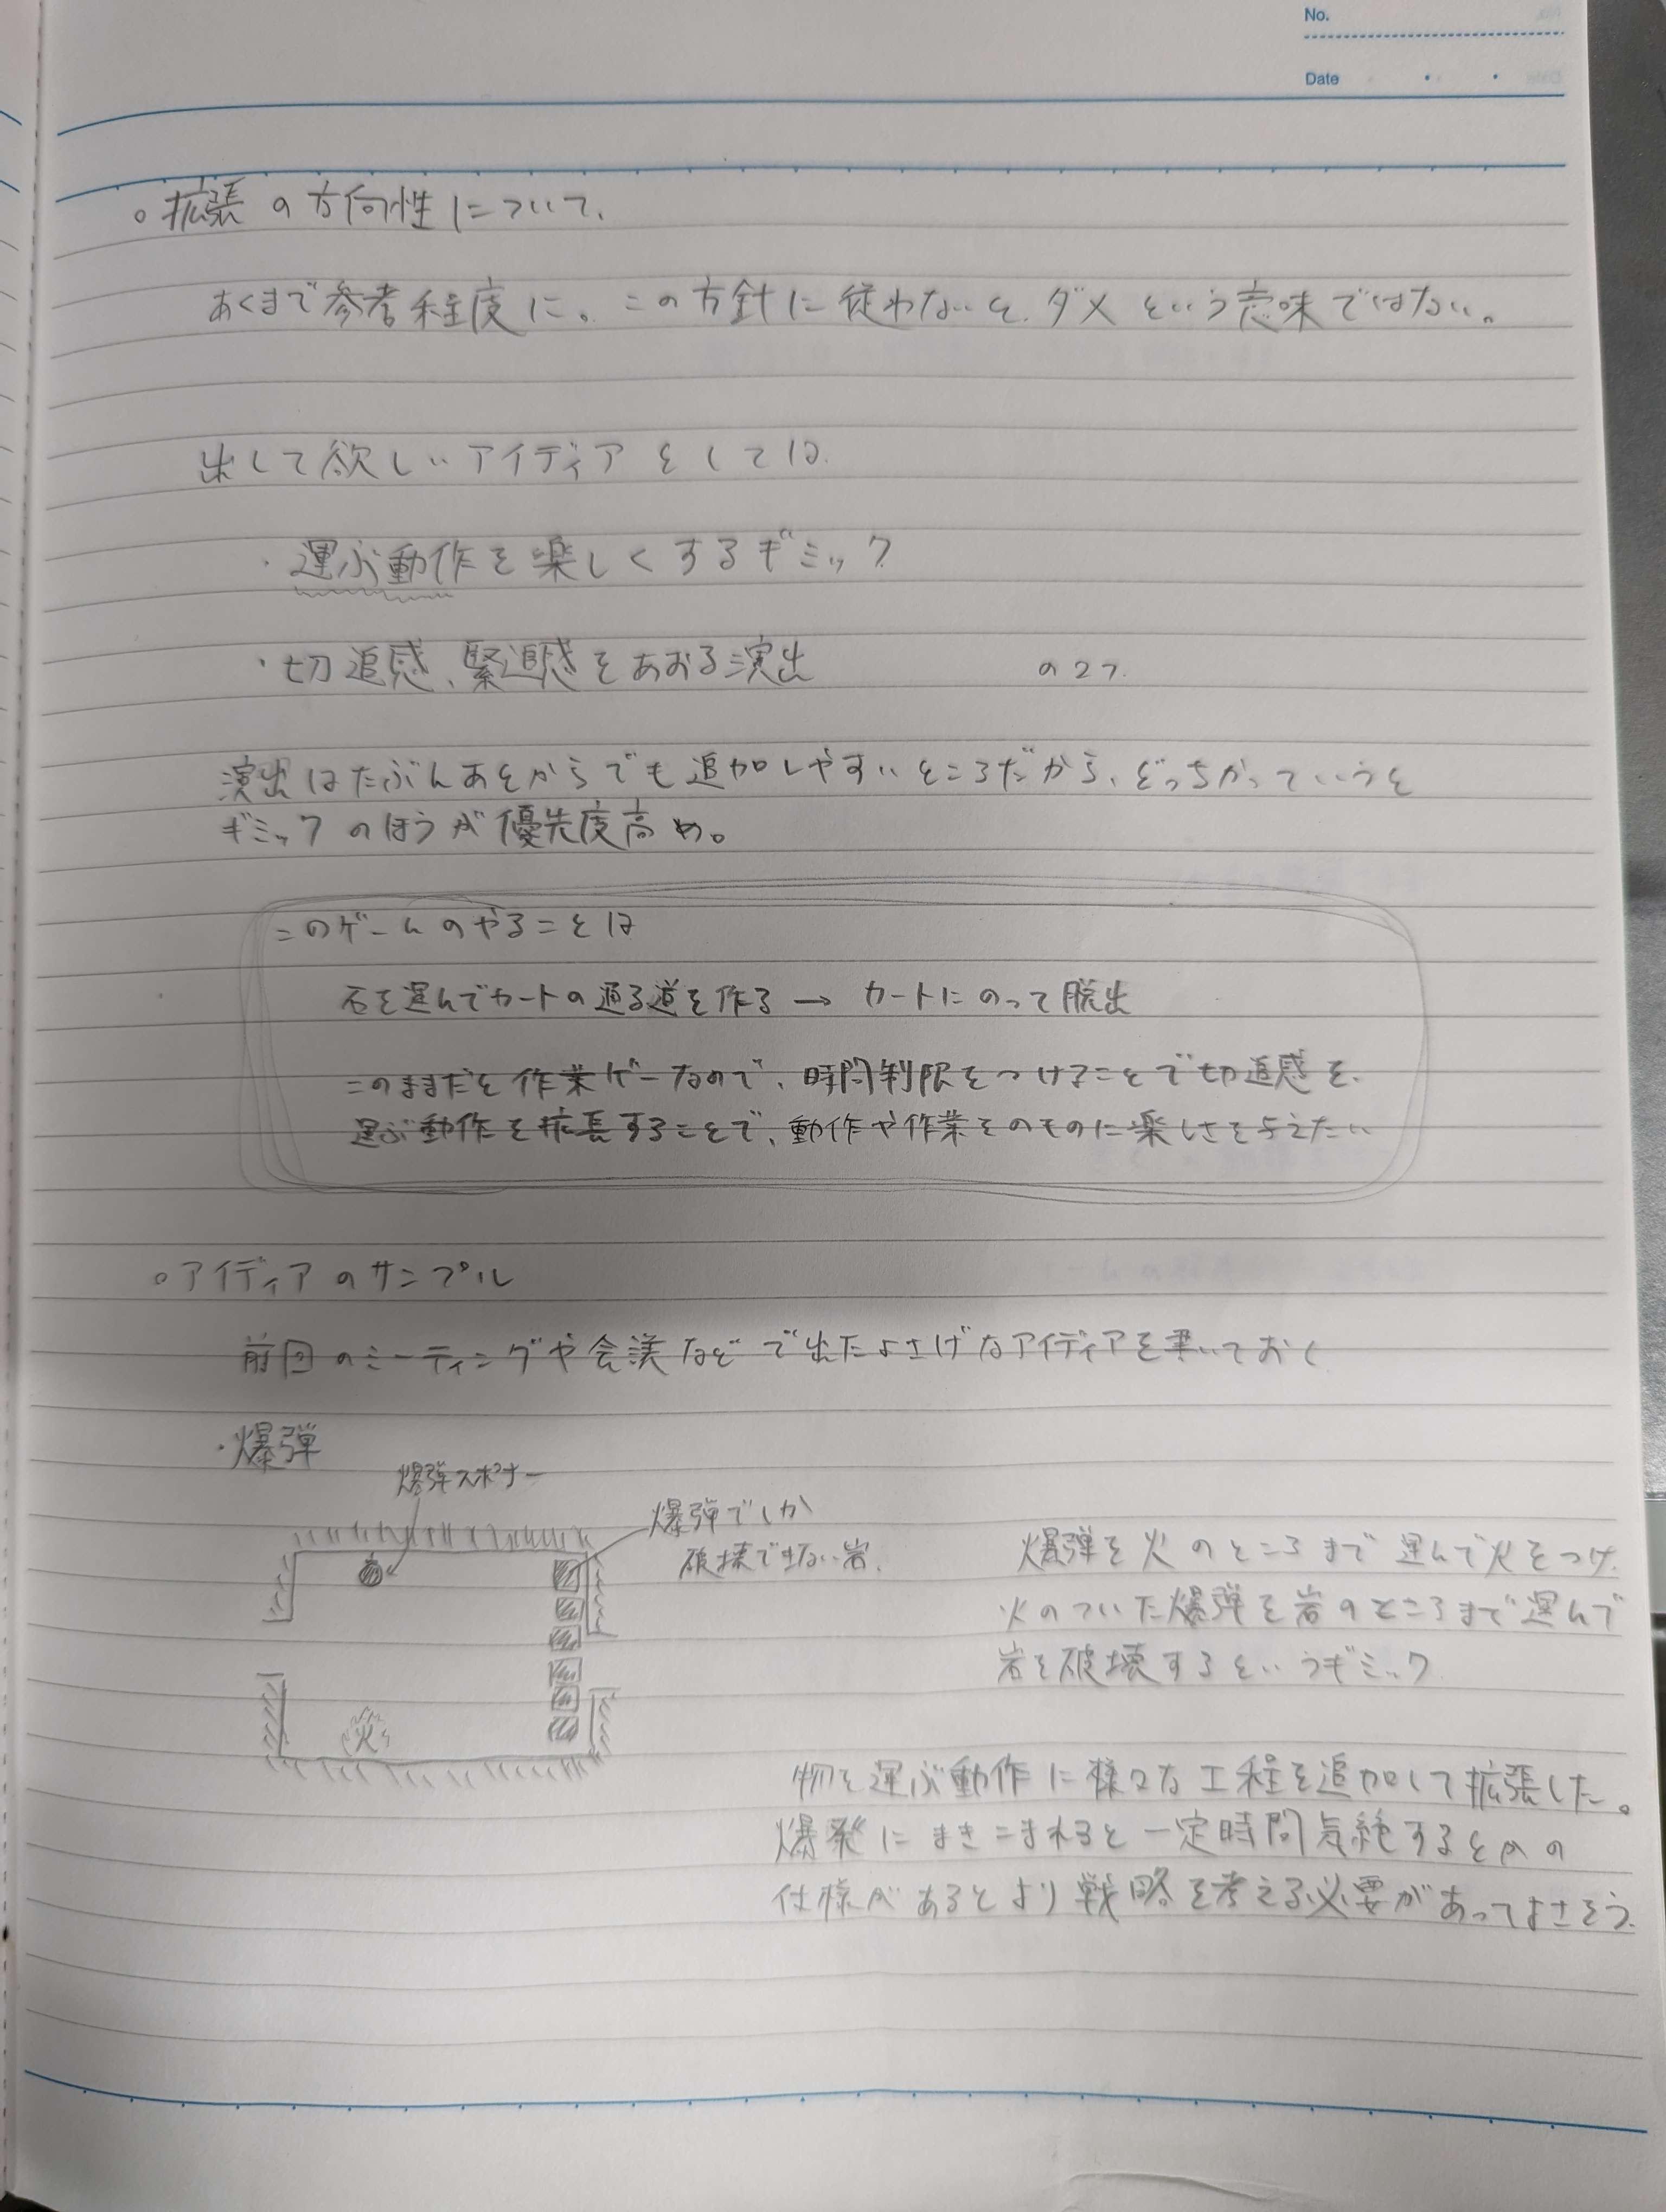 No.
Date
○拡張の方向性について、
あくまで参考程度に。この方針に従わないと、ダメという意味ではない。
出して欲しいアイディアとしては、
・運ぶ動作を楽しくするギミック
・切迫感、緊迫感をあおる演出 の2つ。
演出はたぶんあとからでも追加しやすいところだから、どっちかっていうと
ギミックのほうが優先度高め。
このゲームのやることは
石を運んでカートの通る道を作る → カートにのって脱出
このままだと作業ゲーなので、時間制限をつけることで切迫感を、
運ぶ動作を拡長することで、動作や作業そのものに楽しさを与えたい
○アイディアのサンプル
前回のミーティングや会議などで出たよさげなアイディアを書いておく
・爆弾
爆弾スポナー
爆弾でしか
破壊できない岩、
火
爆弾を火のところまで運んで火をつけ、
火のついた爆弾を岩のところまで運んで
岩を破壊するというギミック
物を運ぶ動作に様々な工程を追加して拡張した。
爆発にまきこまれると一定時間気絶するとかの
仕様があるとより戦略を考える必要があってよさそう。